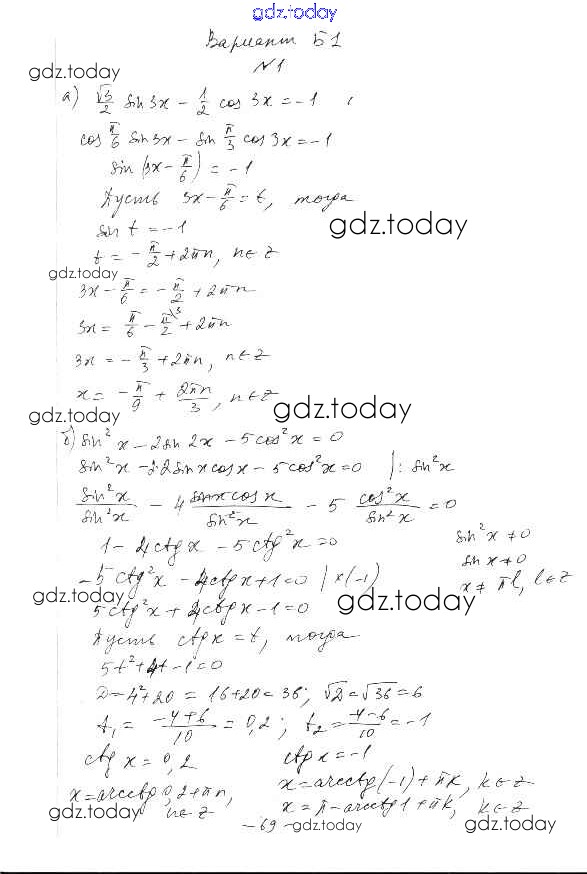 gdz.today
Вариант Б1
№1
gdz.today
а) √3/2 sin 3x − 1/2 cos 3x = −1
cos π/6 sin 3x − sin π/3 cos 3x = −1
sin (3x − π/6) = −1
Пусть 3x − π/6 = t, тогда
sin t = −1
gdz.today
t = −π/2 + 2πn, n∈Z
gdz.today
3x − π/6 = −π/2 + 2πn
3x = π/6 − π/2 \3 + 2πn
3x = −π/3 + 2πn, n∈Z
x = −π/9 + 2πn/3, n∈Z
gdz.today gdz.today
б) sin² x − 2 sin 2x − 5 cos² x = 0
sin² x − 2·2 sin x cos x − 5 cos² x = 0 |: sin² x
sin² x/sin² x − 4 sin x cos x/sin² x − 5 cos² x/sin² x = 0
1 − 4 ctg x − 5 ctg² x = 0 sin² x ≠ 0
sin x ≠ 0
−5 ctg² x − 4 ctg x + 1 = 0 | ×(−1) x ≠ πl, l∈Z
gdz.today gdz.today
5 ctg² x + 4 ctg x − 1 = 0
Пусть ctg x = t, тогда
5t² + 4t − 1 = 0
D = 4² + 20 = 16 + 20 = 36; √D = √36 = 6
t₁ = −4+6/10 = 0,2; t₂ = −4−6/10 = −1
ctg x = 0,2 ctg x = −1
gdz.today gdz.today
x = arcctg 0,2 + πn, x = arcctg(−1) + πk, k∈Z
n∈Z x = π − arcctg 1 + πk, k∈Z
−69− gdz.today gdz.today